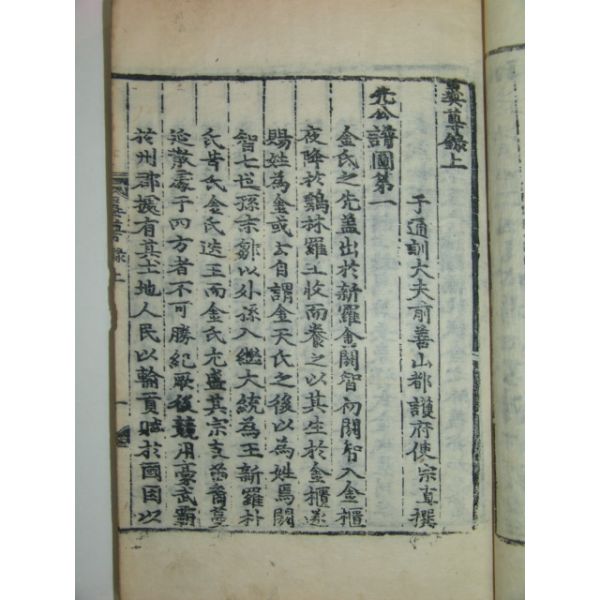 彝尊錄上
子通訓大夫前善山都護府使宗直撰
先公譜圖第一
金氏之先盖出於新羅金閼智初閼智入金櫃
夜降於鷄林羅王收而養之以其生於金櫃遂
賜姓為金或云自謂金天氏之後以為姓焉閼
智七世孫末鄒以外孫入繼大統為王新羅朴
氏昔氏金氏迭王而金氏尤盛其宗支蕃裔蔓
延散處于四方者不可勝紀厥後競用豪武霸
於州郡擾有其土地人民以輸貢賦於國因以
彝尊錄上
一